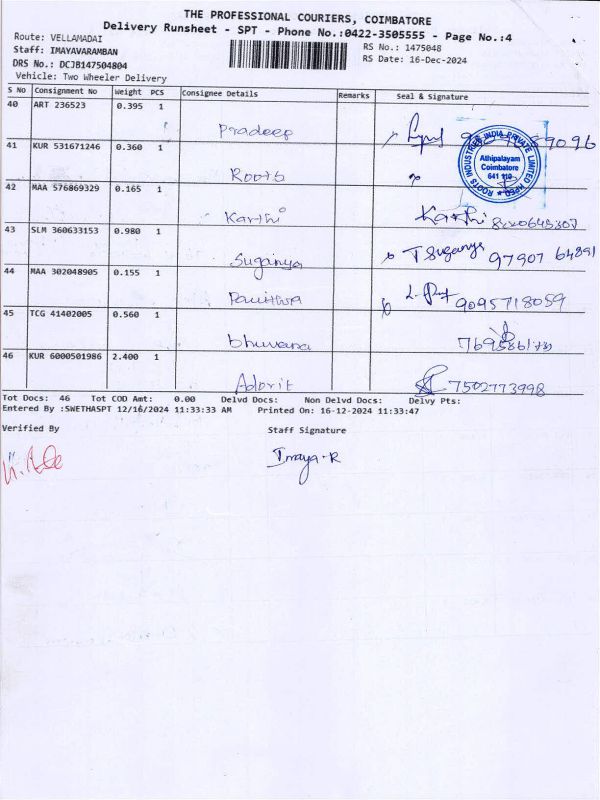 THE PROFESSIONAL COURIERS, COIMBATORE
Delivery Runsheet - SPT - Phone No.:0422-3505555 - Page No.:4
Route: VELLAMADAI
RS No.: 1475048
Staff: IMAYAVARAMBAN
RS Date: 16-Dec-2024
DRS No.: DCJB147504804
Vehicle: Two Wheeler Delivery
S No Consignment No Weight PCS Consignee Details Remarks Seal & Signature
40 ART 236523 0.395 1
Pradeep
41 KUR 531671246 0.360 1
Roots
ROOTS INDUSTRIES INDIA PRIVATE LIMITED
Athipalayam
Coimbatore
641 110
42 MAA 576869329 0.165 1
Karthi Karthi 8220645307
43 SLM 360633153 0.980 1
Suganya T Suganya 97907 64891
44 MAA 302048905 0.155 1
Pavithra 9095718059
45 TCG 41402005 0.560 1
bhuvana
46 KUR 6000501986 2.400 1
7502773998
Tot Docs: 46 Tot COD Amt: 0.00 Delvd Docs: Non Delvd Docs: Delvy Pts:
Entered By :SWETHASPT 12/16/2024 11:33:33 AM Printed On: 16-12-2024 11:33:47
Verified By Staff Signature
Imaya-R